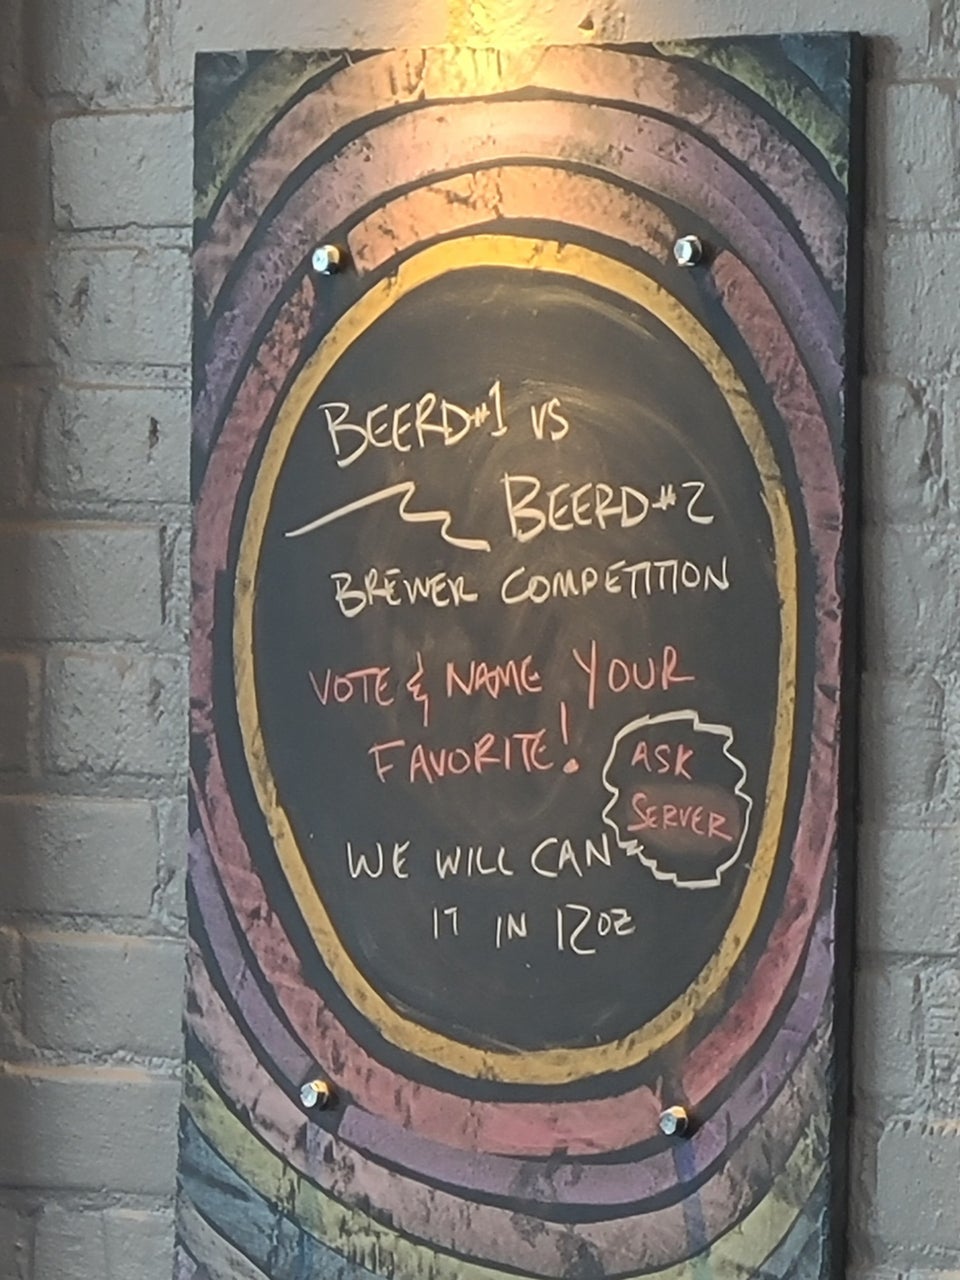 BEERD#1 VS
BEERD#2
BREWER COMPETITION
VOTE & NAME YOUR
FAVORITE!
ASK
SERVER
WE WILL CAN
IT IN 12OZ